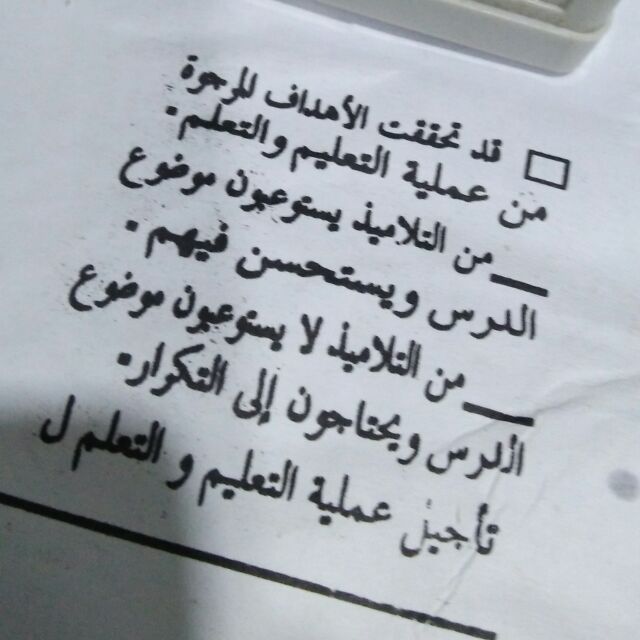 قد تحققت الأهداف المرجوة
من عملية التعليم والتعلم.
من التلاميذ يستوعبون موضوع
الدرس ويستحسن فيهم.
من التلاميذ لا يستوعبون موضوع
الدرس ويحتاجون إلى التكرار.
تأجيل عملية التعليم و التعلم ل